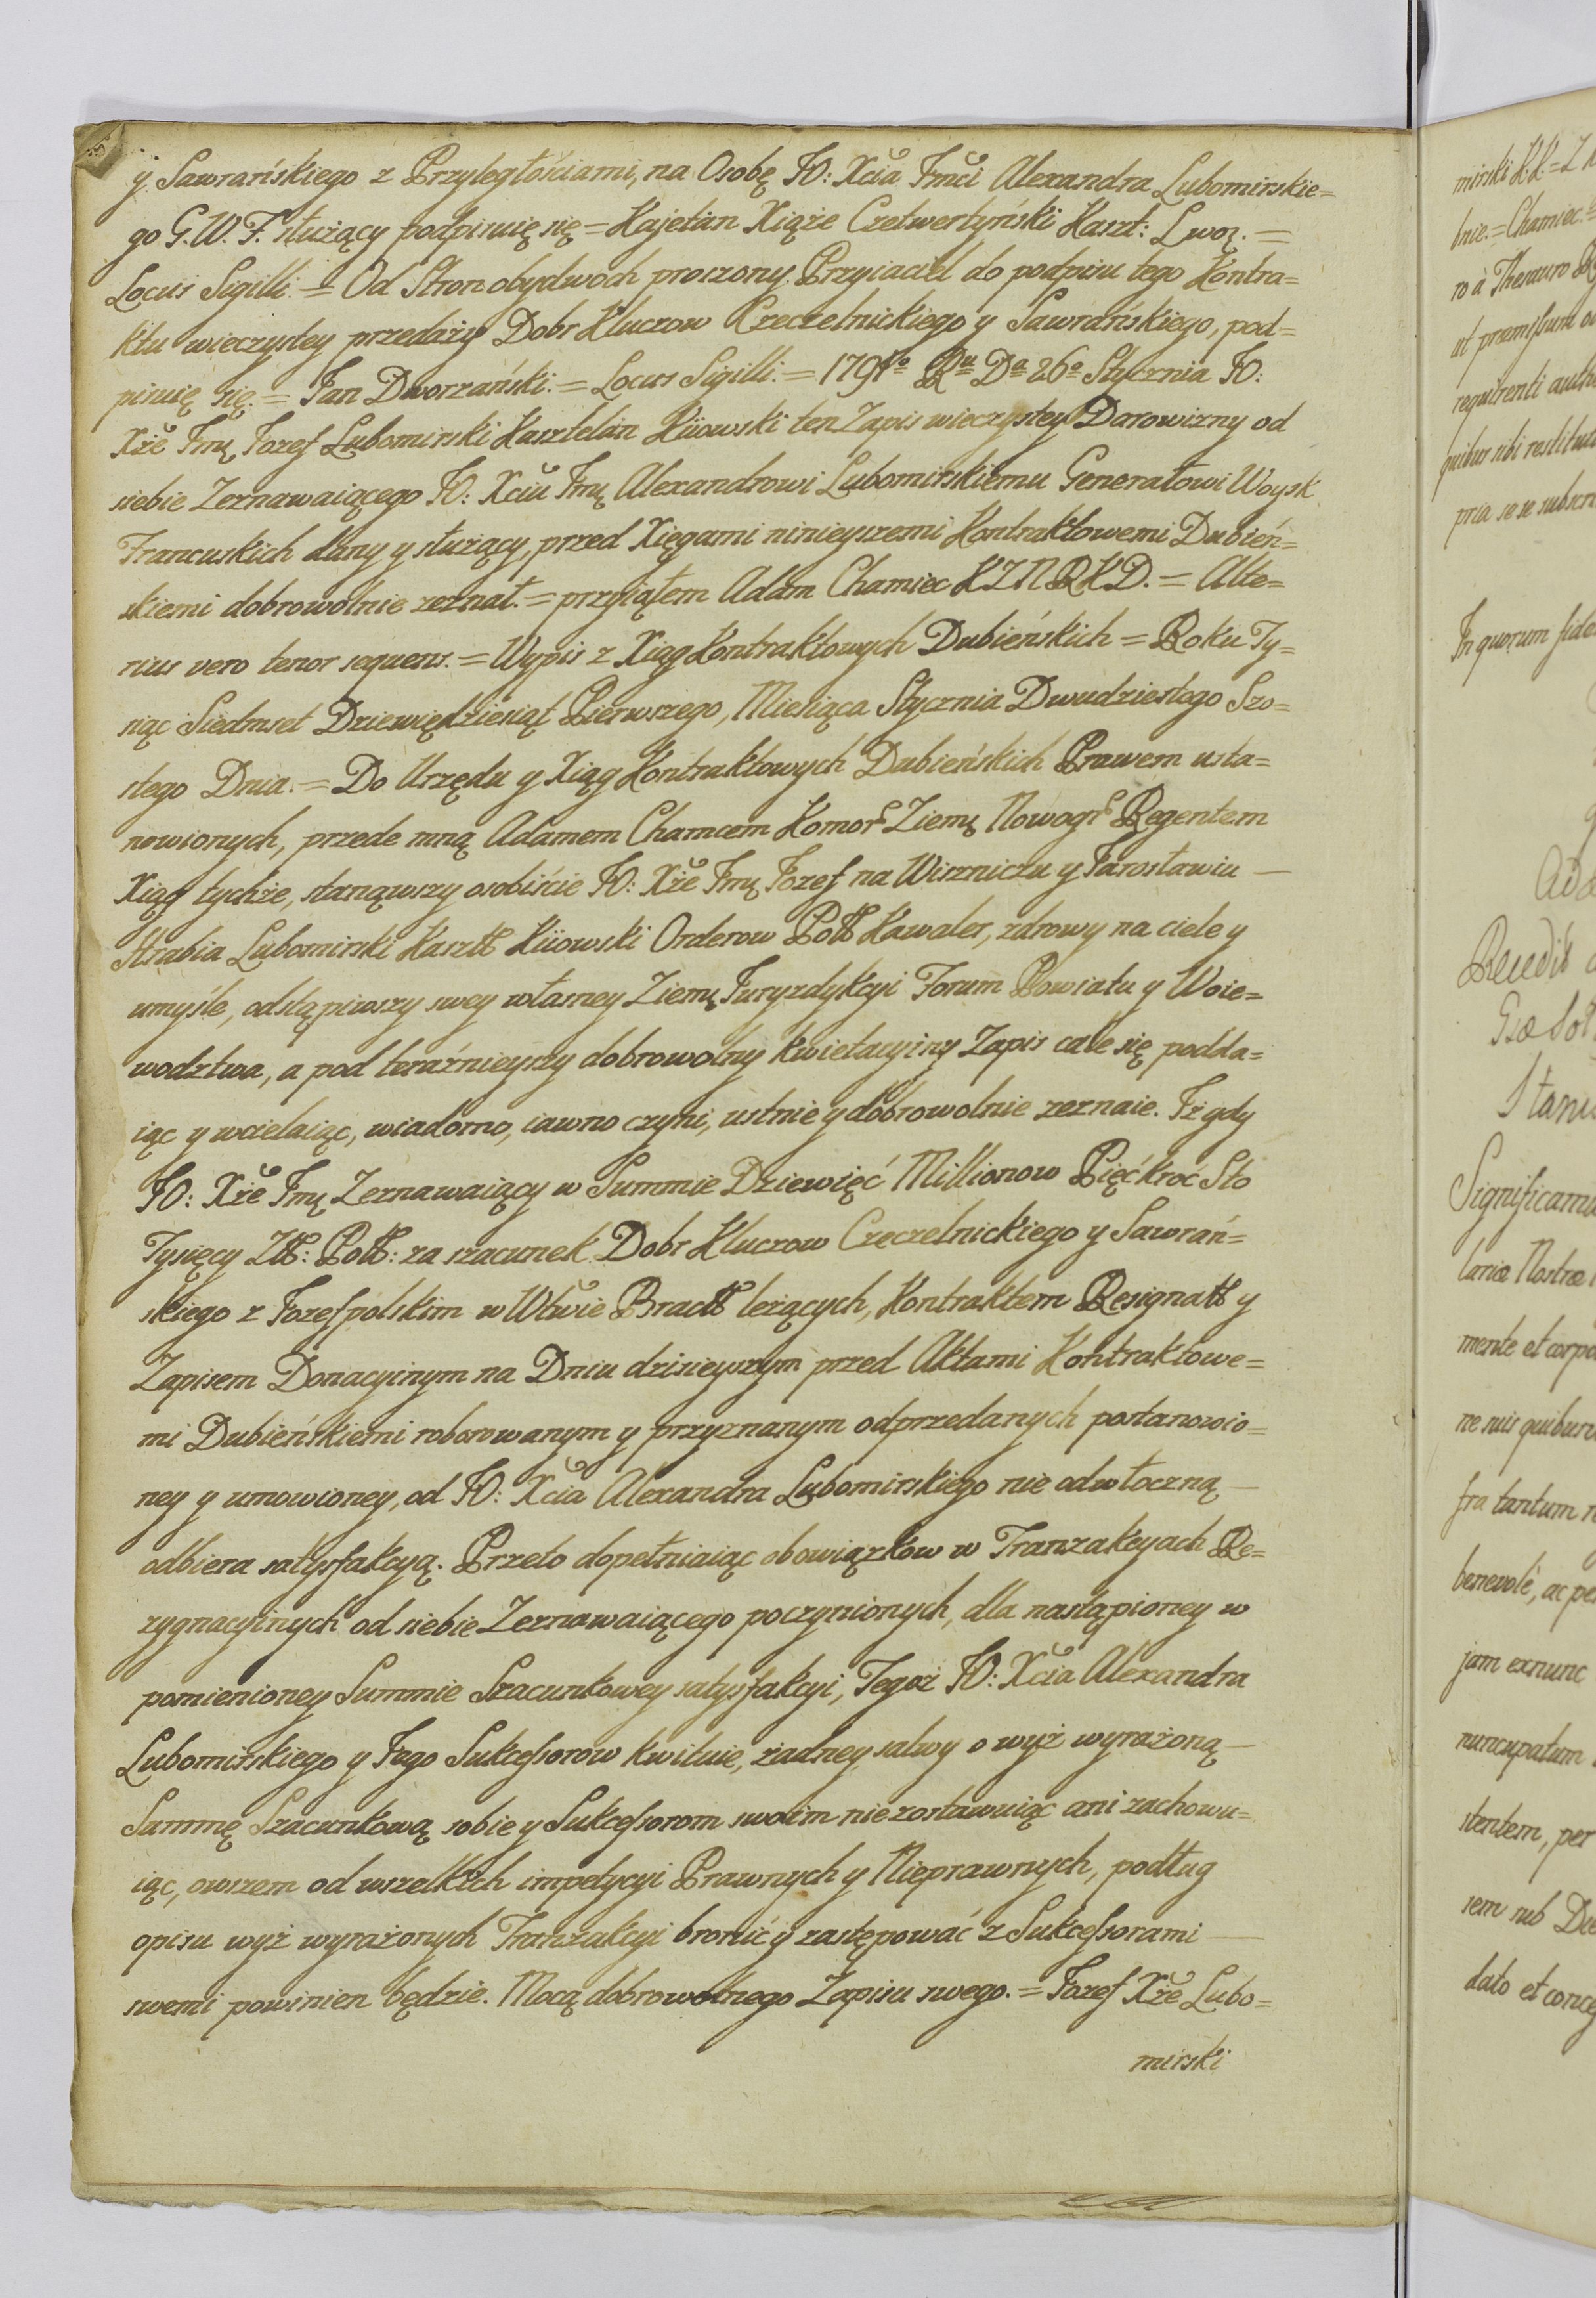 y Sawrańskiego z Przyległościami, na Osobę JO: Xcia Jmci Alexandra Lubomirskie=
go G. W. F. służący podpisuię się = Kajetan Xiąże Czetwertyński Kaszt:
Locus Sigilli. = Od Stron obydwoch proszony Przyiaciel do podpisu tego Kontra=
ktu wieczystey przedaży Dobr Kluczow Czeczelnickiego y Sawrańskiego, pod=
pisuię się. = Jan Dworzański. = Locus Sigilli. = 1791o Ru Da 26a Stycznia JO:
Xże Jmę Jozef Lubomirski Kasztelan Kiiowski ten Zapis wieczystey Darowizny od
siebie Zeznawaiącego JO: Xciu Jmę Alexandrowi Lubomirskiemu Generałowi Woysk
Francuskich dany y służący, przed Xięgami ninieyszemi Kontraktowemi Dubień=
skiemi dobrowolnie zeznał. = przyiąłem Adam Chamiec KZNRKD. = Alte=
rius vero tenor sequens. = Wypis z Xiąg Kontraktowych Dubieńskich = Roku Ty=
siąc Siedmset Dziewiędziesiąt Pierwszego, Miesiąca Stycznia Dwudziestego Szo=
stego Dnia. = Do Urzędu y Xiąg Kontraktowych Dubieńskich Prawem usta=
nowionych, przede mną Adamem Chamcem Komor Ziemę Nowogr Regentem
Xiąg tychże, stanąwszy osobiście JO: Xże Jmę Jozef na Wiszniczu y Jarosławiu —
Hrabia Lubomirski Kasztt Kiiowski Orderow Poltt Kawaler, zdrowy na ciele y
umyśle, odstąpiwszy swey własney Ziemę Juryzdykcyi Forum Powiatu y Woie=
wodztwa, a pod teraźnieyszy dobrowolny kwietacyiny Zapis cale się podda=
iąc y wcielaiąc, wiadomo, iawno czyni, ustnie y dobrowolnie zeznaie. Iż gdy
JO: Xże Jmę Zeznawaiący w Summie Dziewięć Millionow Pięćkroć Sto
Tysięcy Ztt: Poltt: za szacunek Dobr Kluczow Czeczelnickiego y Sawrań=
skiego z Jozefpolskim w Wtwie Bractt leżących, Kontraktem Resignatt y
Zapisem Donacyinym na Dniu dzisieyszym przed Aktami Kontraktowe=
mi Dubieńskiemi roborowanym y przyznanym odprzedanych postanowio=
ney y umowioney, od JO: Xcia Alexandra Lubomirskiego nie odwłoczną —
odbiera satysfakcyą. Przeto dopełniaiąc obowiązkow w Tranzakcyach Re=
zygnacyinych od siebie Zeznawaiącego poczynionych, dla nastąpioney w
pomienioney Summie Szacunkowey satysfakcyi, Tegoż JO: Xcia Alexandra
Lubomirskiego y Jego Sukcessorow kwituie, żadney salwy o wyż wyrażoną —
Summę Szacunkową sobie y Sukcessorom swoim niezostawuiąc ani zachowu=
iąc, owszem od wszelkich impetycyi Prawnych y Nieprawnych, podług
opisu wyż wyrażonych Tranzakcyi bronić y zastępować z Sukcessorami —
swemi powinien będzie. Mocą dobrowolnego Zapisu swego. = Jozef Xże Lubo=
mirski